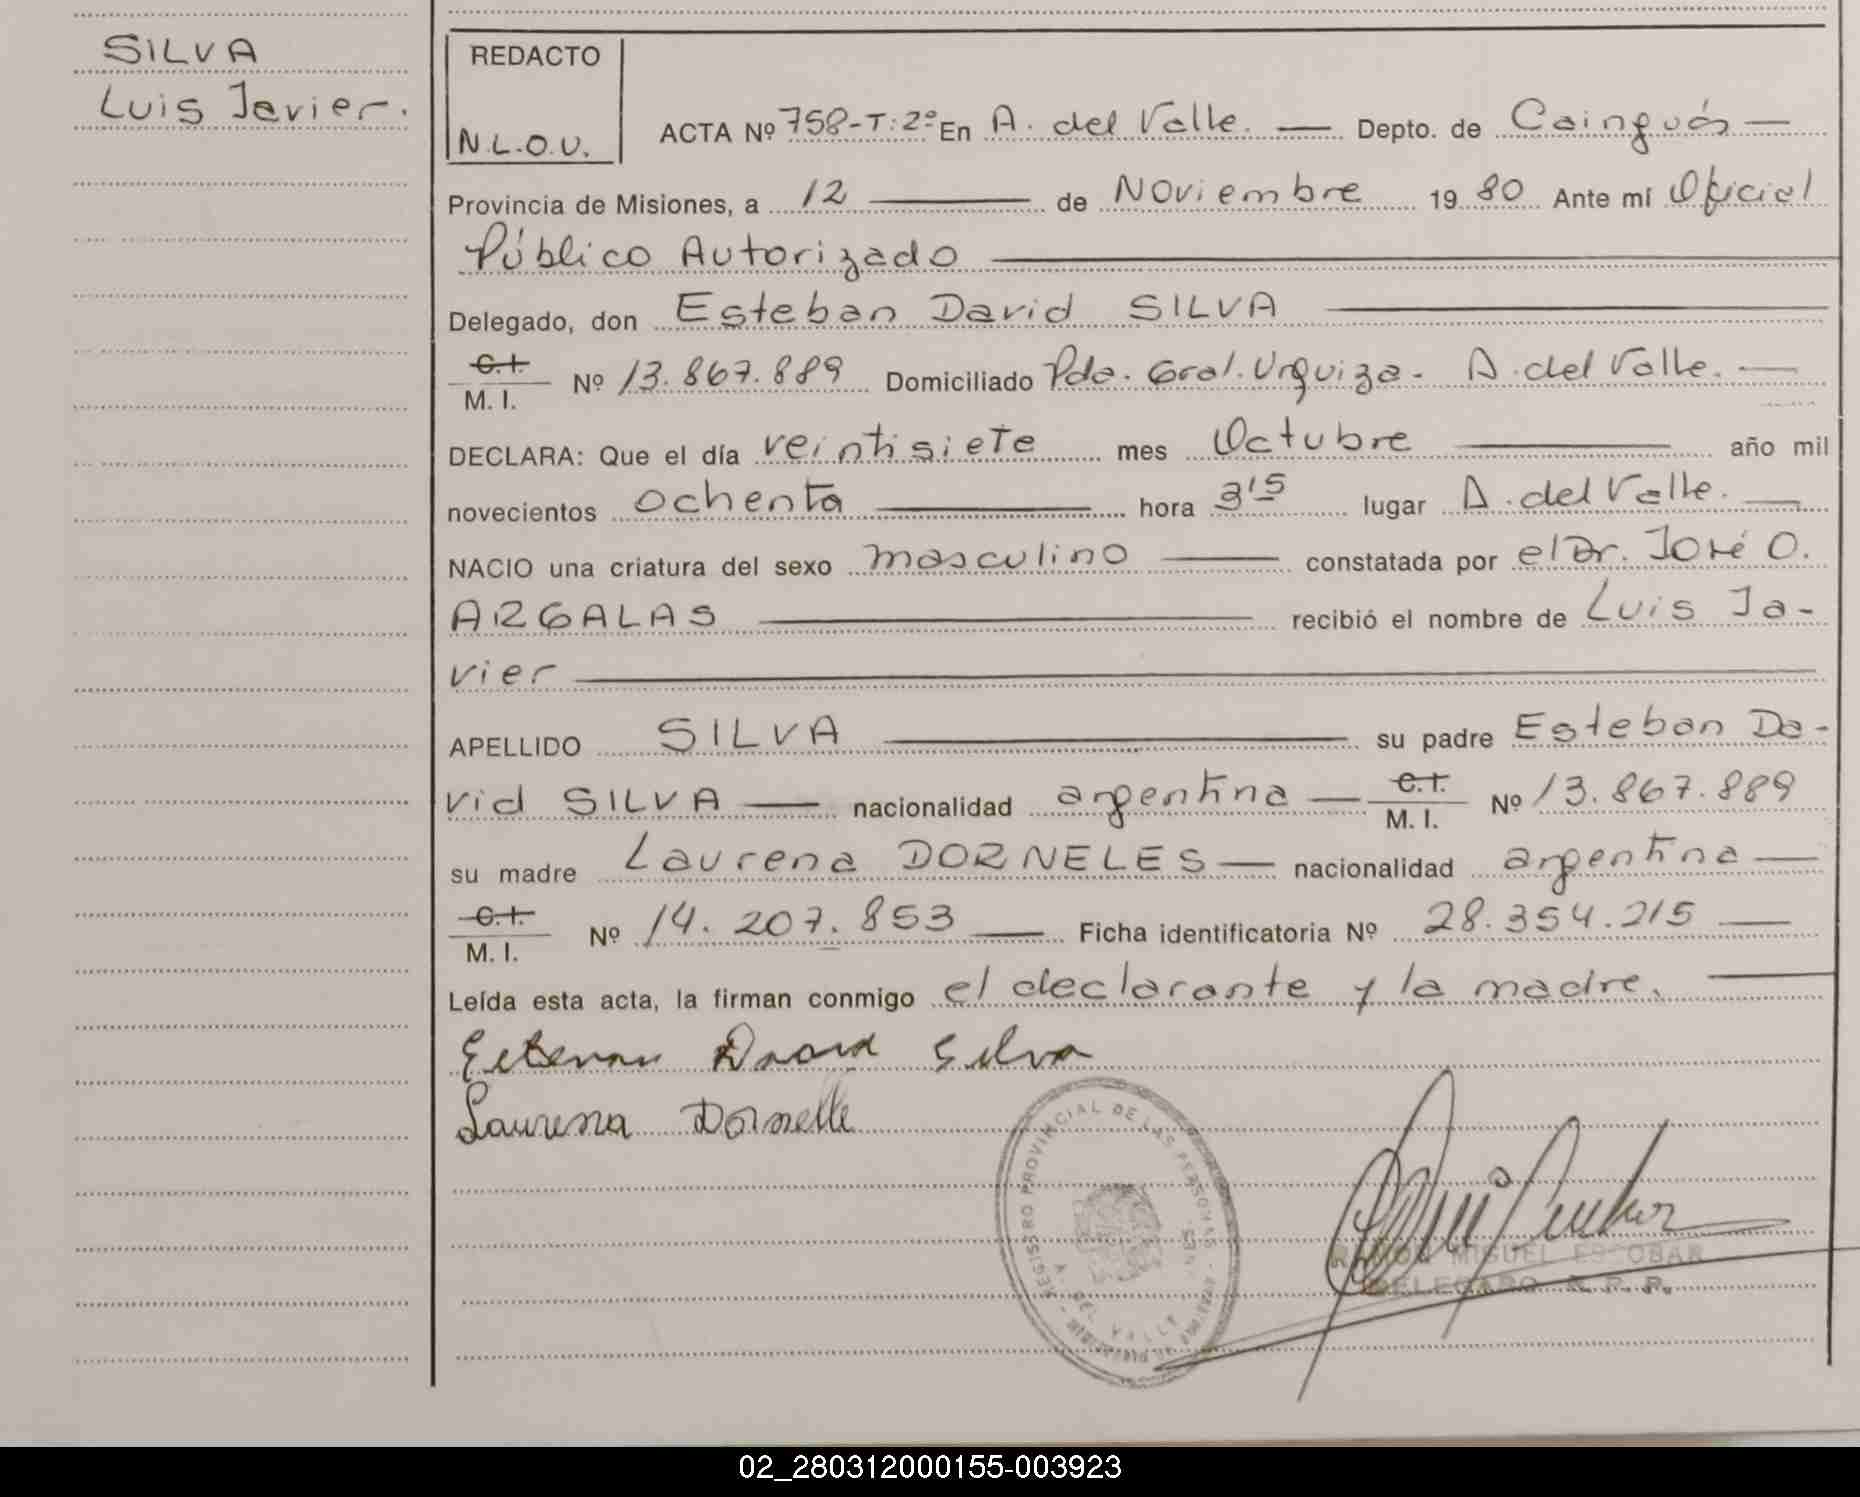 SILVA
Luis Javier.
REDACTO
N.L.O.U.
ACTA Nº 758-T:2º En A. del Valle. — Depto. de Cainguás —
Provincia de Misiones, a 12 — de Noviembre 19 80 Ante mí Oficial
Público Autorizado —
Delegado, don Esteban David SILVA —
C.I.
M. I. Nº 13.867.889 Domiciliado Pda. Gral. Urquiza - A. del Valle. —
DECLARA: Que el día veintisiete mes Octubre — año mil
novecientos ochenta — hora 3 15 lugar A. del Valle. —
NACIO una criatura del sexo masculino — constatada por el Dr. José O.
ARGALAS — recibió el nombre de Luis Ja-
vier —
APELLIDO SILVA — su padre Esteban Da-
vid SILVA — nacionalidad argentina — C.I. M. I. Nº 13.867.889
su madre Laurena DORNELES — nacionalidad argentina —
C.I.
M. I. Nº 14.207.853 — Ficha identificatoria Nº 28.354.215 —
Leída esta acta, la firman conmigo el declarante y la madre. —
Estevan David Silva
Laurena Dornelle
REGISTRO PROVINCIAL DE LAS PERSONAS
A. DEL VALLE
RAMON MIGUEL ESCOBAR
DELEGADO R. P. P.
02_280312000155-003923